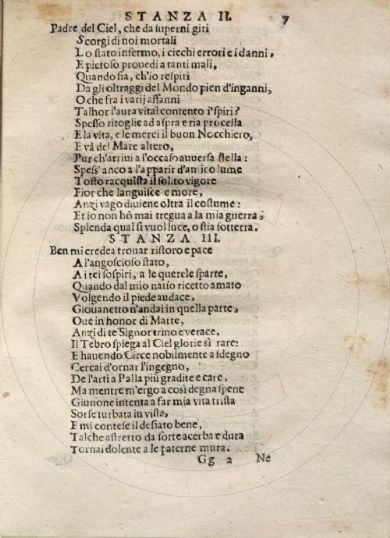 STANZA II. 7
Padre del Ciel, che da superni giri
Scorgi di noi mortali
Lo stato infermo, i ciechi errori e i danni,
E pietoso prouedi a tanti mali,
Quando fia, ch'io respiri
Da gli oltraggi del Mondo pien d'inganni,
O che fra i varij affanni
Talhor l'aura vital contento i'spiri?
Spesso ritoglie ad aspra e ria procella
E la vita, e le merci il buon Nocchiero,
E và del Mare altero,
Pur ch'arriui a l'occaso auuersa stella:
Spess'anco a l'apparir d'amico lume
Tosto racquista il solito vigore
Fior che languisce e more,
Anzi vago diuiene oltra il costume:
Et io non hò mai tregua a la mia guerra,
Splenda qual si vuol luce, o stia sotterra.
STANZA III.
Ben mi credea trouar ristoro e pace
A l'angoscioso stato,
A i rei sospiri, a le querele sparte,
Quando dal mio natio ricetto amato
Volgendo il piede audace,
Giouanetto n'andai in quella parte,
Oue in honor di Marte,
Anzi di te Signor trino e verace,
Il Tebro spiega al Ciel glorie sì rare:
E hauendo Circe nobilmente a sdegno
Cercai d'ornar l'ingegno,
De l'arti a Palla più gradite e care,
Ma mentre m'ergo a così degna spene
Giunone intenta a far mia vita trista
Sorse turbata in vista,
E mi contese il desiato bene,
Talche astretto da sorte acerba e dura
Tornai dolente a le paterne mura.
Gg 2 Ne